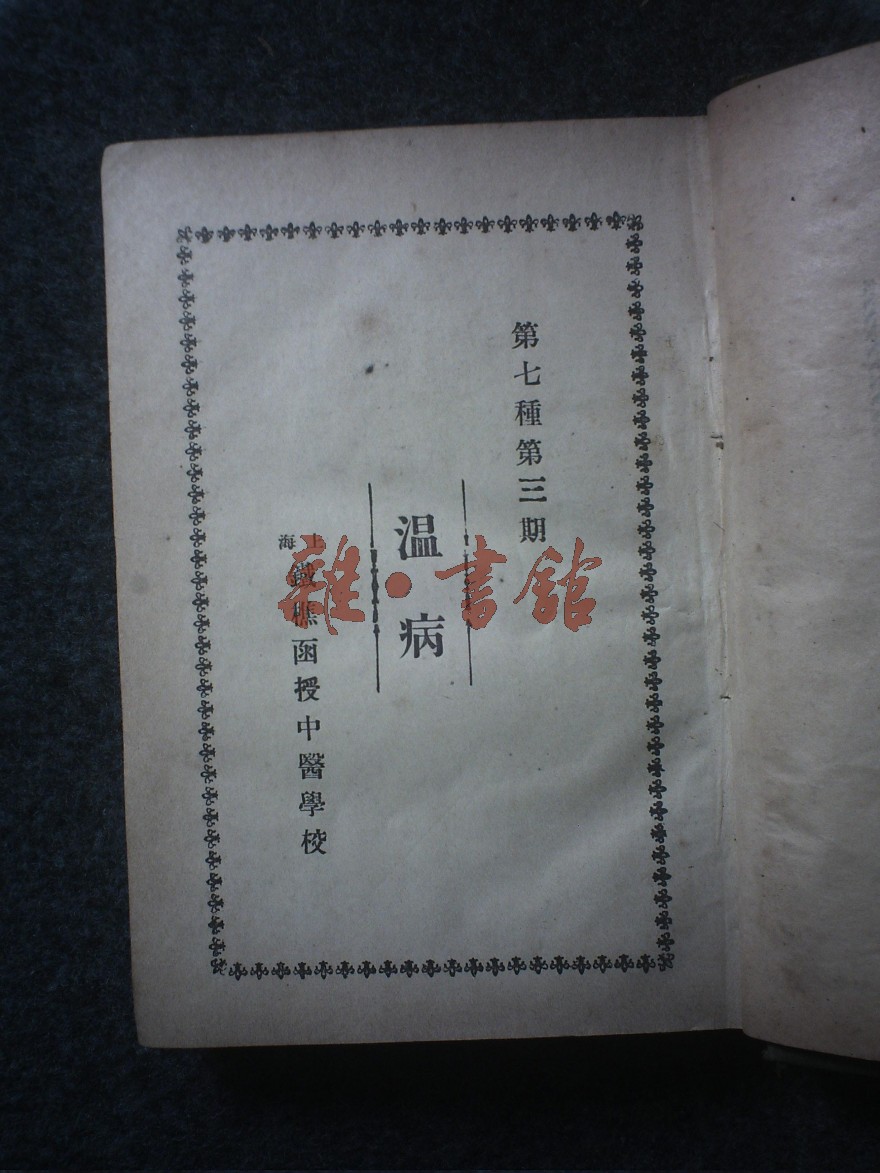 第七種第三期
温病
上海
鐵樵函授中醫學校
雜·書館